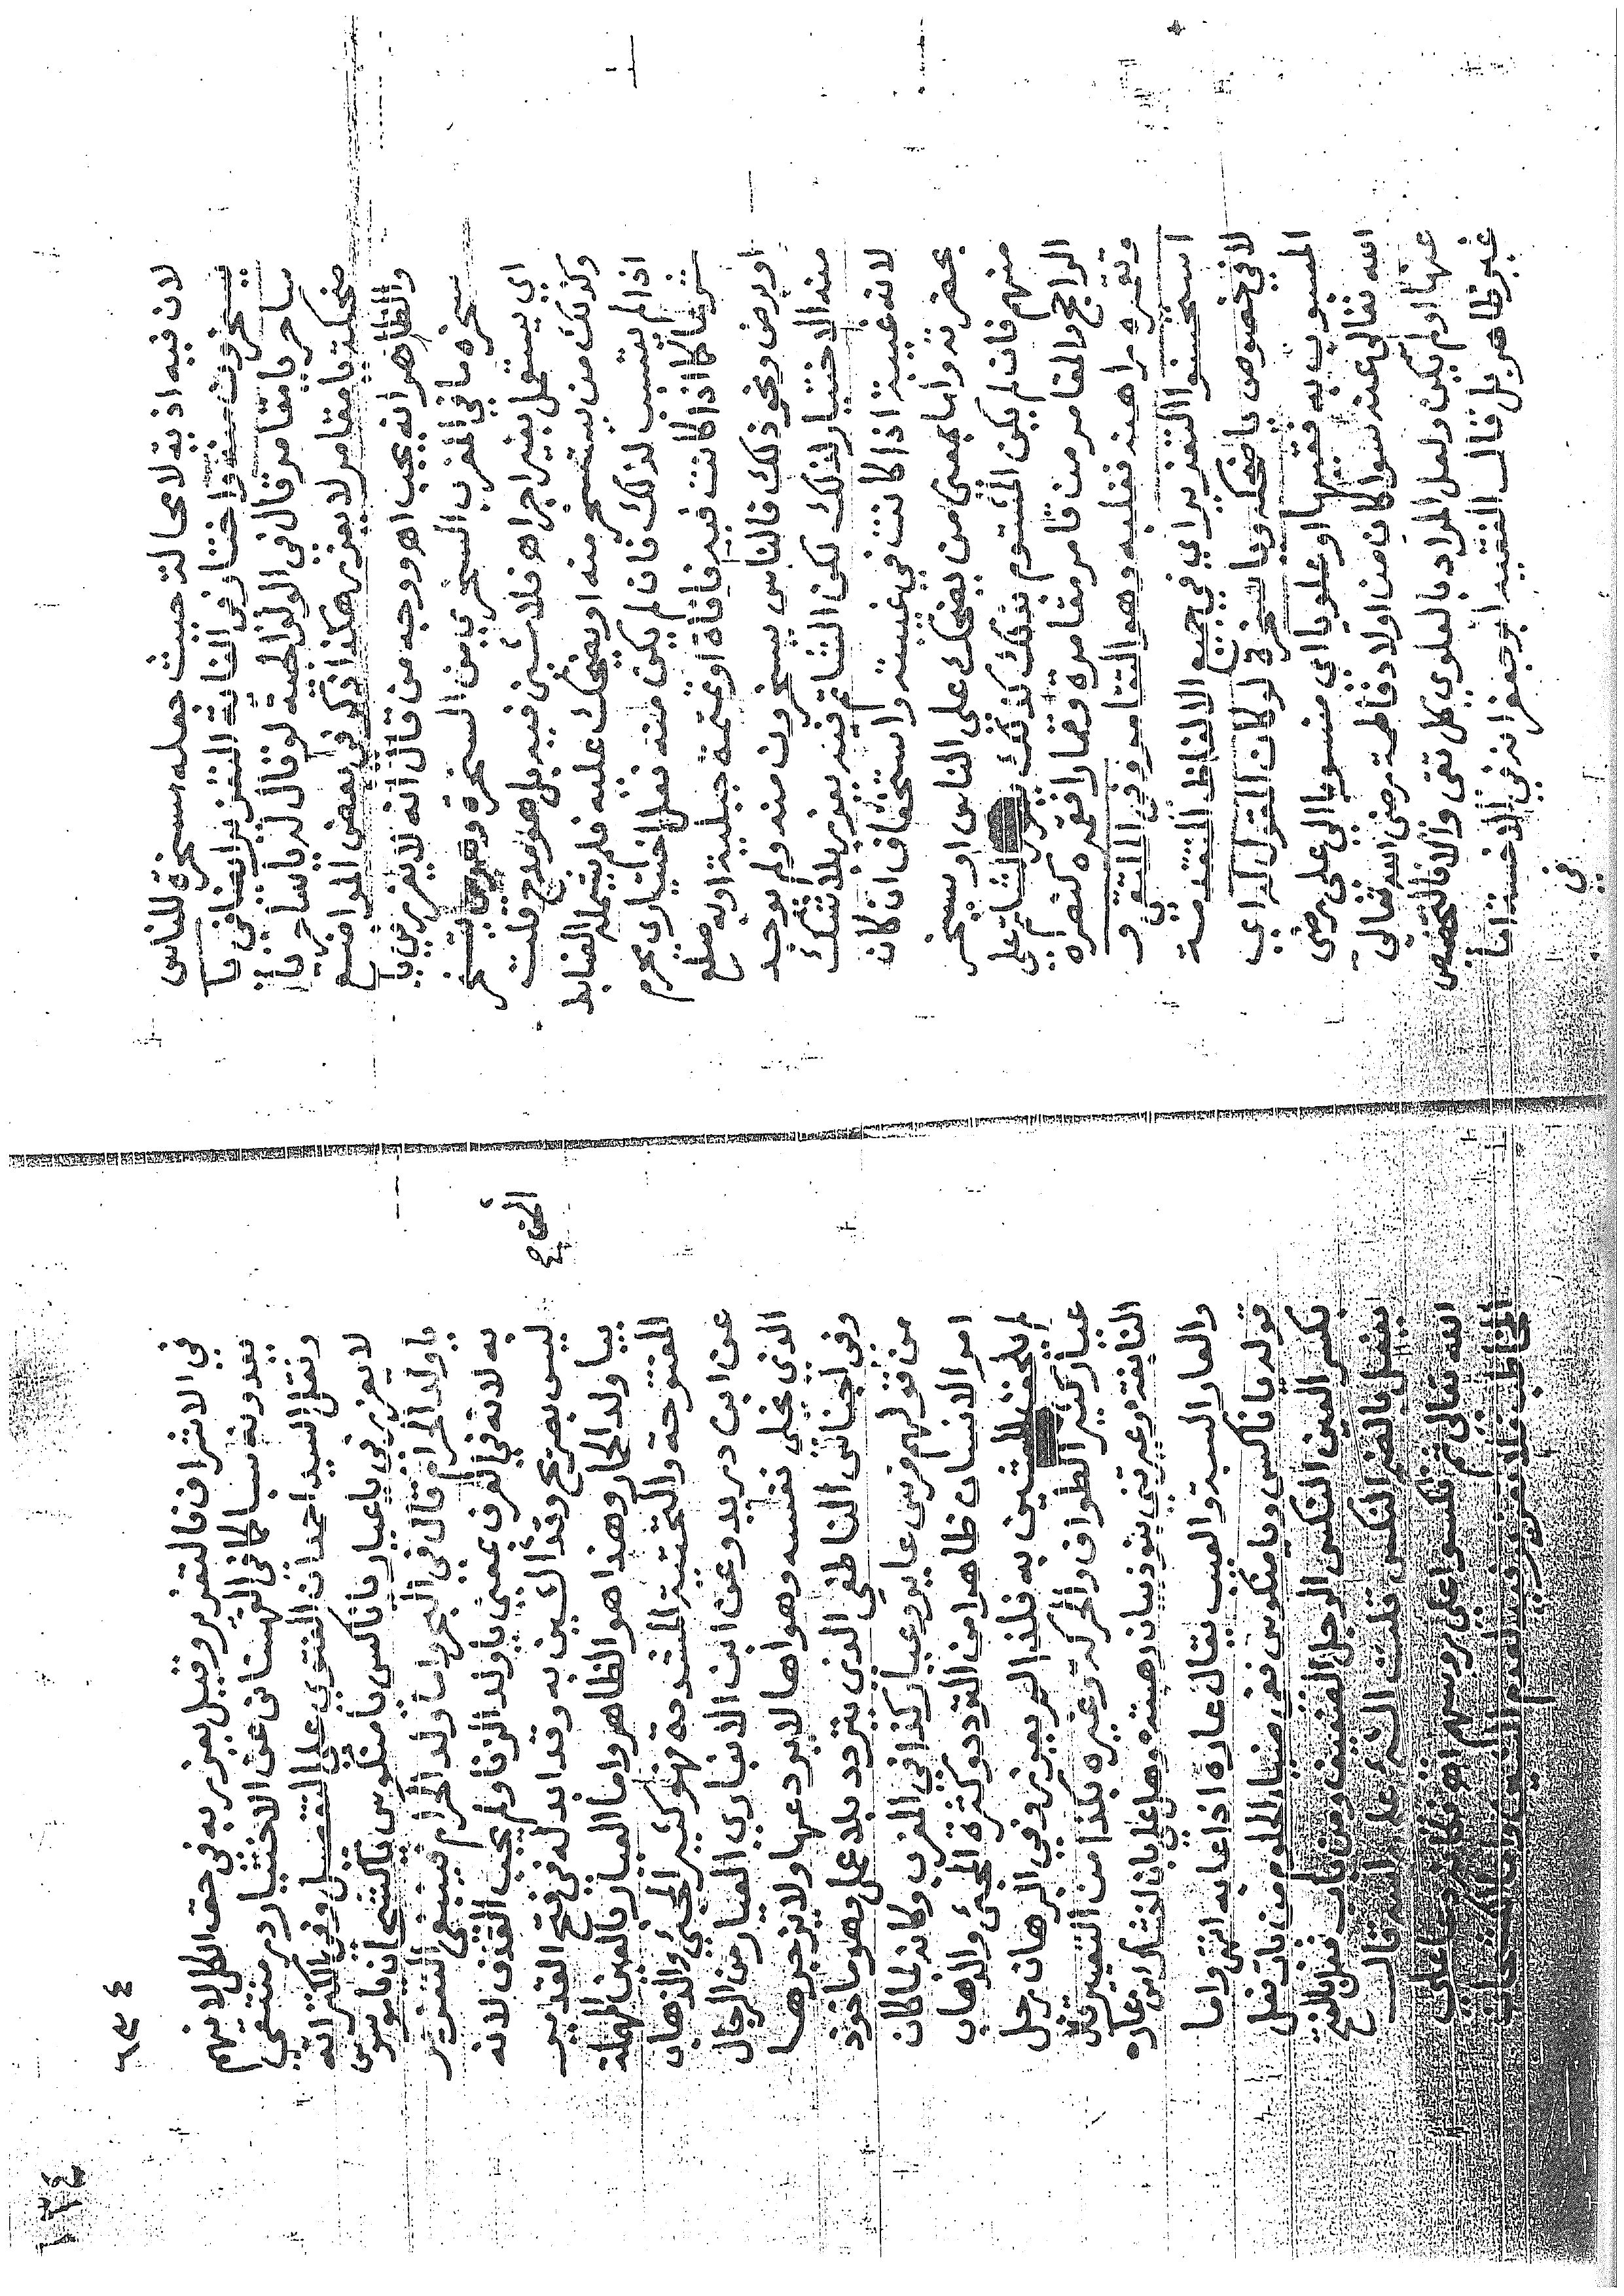 لان فيه اذية لا محالة حيث جعله سخرة للناس
يسخرون منه واختار في الغاية التعزير ايضا في يا
ساحر يا مقامر قال في الولوالجية لو قال له يا ساحر يا
ضحكة يا مقامر لا يعزر هكذا ذكر في بعض المواضع
والظاهر انه يجب اهـ ووجه من قال انه لا يعزر في يا
سخرة ما في المغرب السخري من السخرة وهو ما يتسخر
اي يستعمل بغير اجر اهـ فلا شيء فيه بل هو مدح قلت
وكذلك من يستسخر منه او يضحك عليه فلم يتمله الضابط
اذا لم يتسبب لذلك فان لم يكن منه فعل اختياري محرم
شرعا كما اذا كانت فيه فأفأة او تمتمة جبلية او به صلع
او برص ونحو ذلك فالناس يسخرون منه ولم يوجد
منه الاختيار لذلك لكن الشاتم فيه يعزر بلا شك
لانه غيبة اذا كانت في غيبته واستخفاف ان كان
بحضرته واما بمعنى من يضحك على الناس او يسخر
منهم فان لم يكن المشتوم بذلك كذلك عزر الشاتم على
الراجح والمقامر من قامره مقامرة وقمارا فقمره كنصره
وتقمره راهنه فغلبه وهو التقامر وفي الملتقى و
استحسنوا التعزير اي في جميع الالفاظ المتقدمة
لا في خصوص يا ضحكة ويا سخرة لو كان المقول له اي
المسبوب به فقيها او علويا اي منسوبا الى علي رضي
الله تعالى عنه سواء كان من اولاد فاطمة رضي الله تعالى
عنها او لم يكن ولعل المراد بالعلوي كل تقي والا فالتخصيص
غير ظاهر بل قال الفقيه ابو جعفر انه في الاخسة اما
في
٦٣٤
في الاشراف فالتعزير وقيل يعزر به في حق الكل لانهم
يعدونه سبا كما في القهستاني عن الاختيار در منتقى
ونقل السيد احمد ان الفتوى على التفصيل وفي اكثر انه
لا يعزر في يا عيار يا ناكس يا منكوس يا كشحان قاموس
يا ولد الحرام قال في البحر اما ولد الحرام فينبغي التعزير
به لانه في العرف بمعنى يا ولد الزنا ولم يجب القذف لانه
ليس بصريح وقد الحقين به وقد ابدله في فتح القدير
بيا ولد الحمار وهذا هو الظاهر واما العيار بالعين المهملة
المفتوحة والتحتية المشددة فهو كثير المجيء والذهاب
عن ابن دريد وعن ابن الانباري العيار من الرجال
الذي يخلي نفسه وهواها لا يردعها ولا يزجرها
وفي اجناس الناطفي الذي يتردد بلا عمل وهو ماخوذ
من قولهم فرس عاير وعيار كذا في المغرب وكانه لما كان
امر الانسان ظاهرا من التردد وكثرة المجيء والذهاب
لم يلحق الشين به فلذا لم يعزر وفي البرهان رجل
عيار كثير الطواف والحركة وعيره بكذا من التعيير قال
النابغة وعيرتني بنو ذبيان رهبته وهل علي بان اخشاك من عار
والعار السبة والعيب يقال عاره اذا عابه انتهى واما
قوله يا ناكس ويا منكوس ففي ضياء الحلوم من باب فعل
بكسر العين النكس الرجل الضعيف ومن باب فعل بالفتح
يفعل بالضم النكس قلب الشيء على راسه قال
الله تعالى ثم نكسوا على رؤسهم اهـ